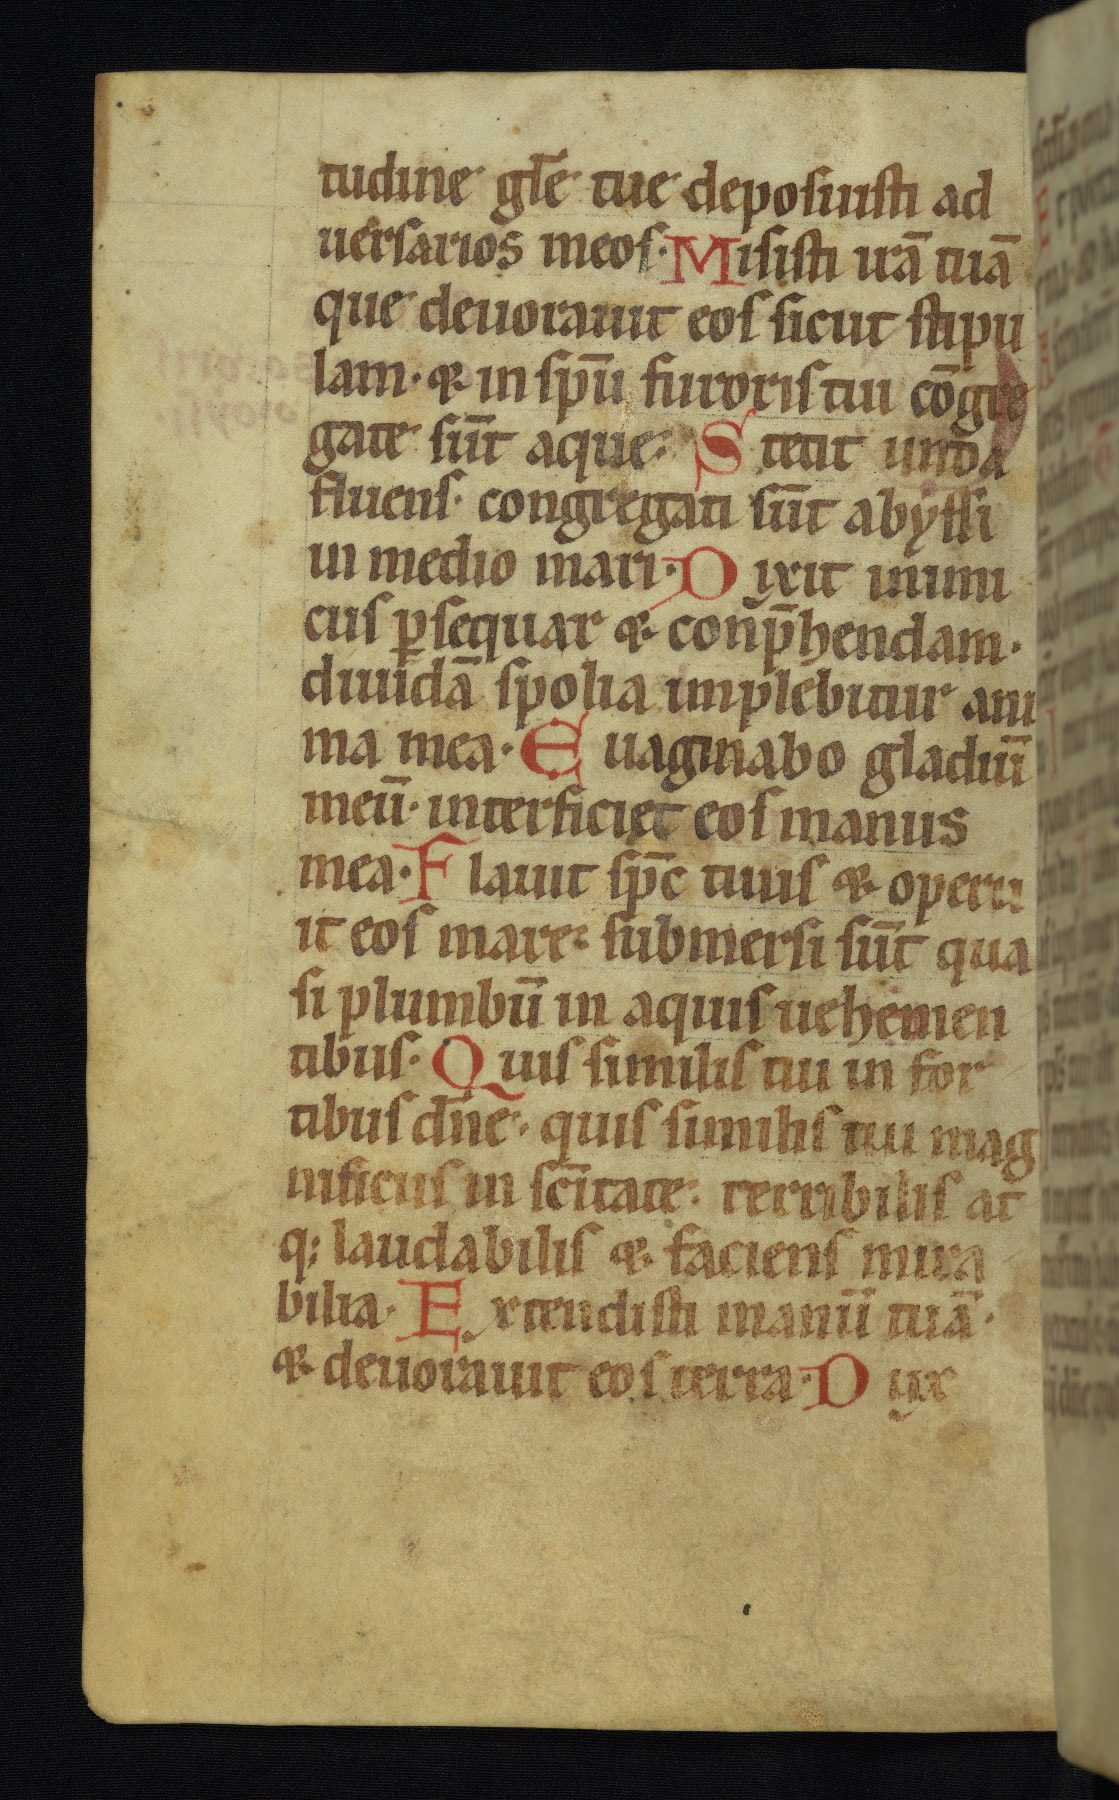 tudine gl̄e tue deposuisti ad
uersarios meos. Misisti irā tuā
que deuorauit eos sicut stipu
lam. & in spū furoris tui cōgre
gate sūt aque. Stetit unda
fluens. congregati sūt abyssi
in medio mari. Dixit inimi
cus ꝑsequar & conp̄hendam.
diuidā spolia implebitur ani
ma mea. Euaginabo gladiū
meū. interficiet eos manus
mea. Flauit sp̄c tuus & operu
it eos mare. submersi sūt qua
si plumbū in aquis uehemen
tibus. Quis similis tui in for
tibus dn̄e. quis similis tui mag
nificus in sc̄itate. terribilis at
q; laudabilis & faciens mira
bilia. Extendisti manū tuā.
& deuorauit eos terra. Dux